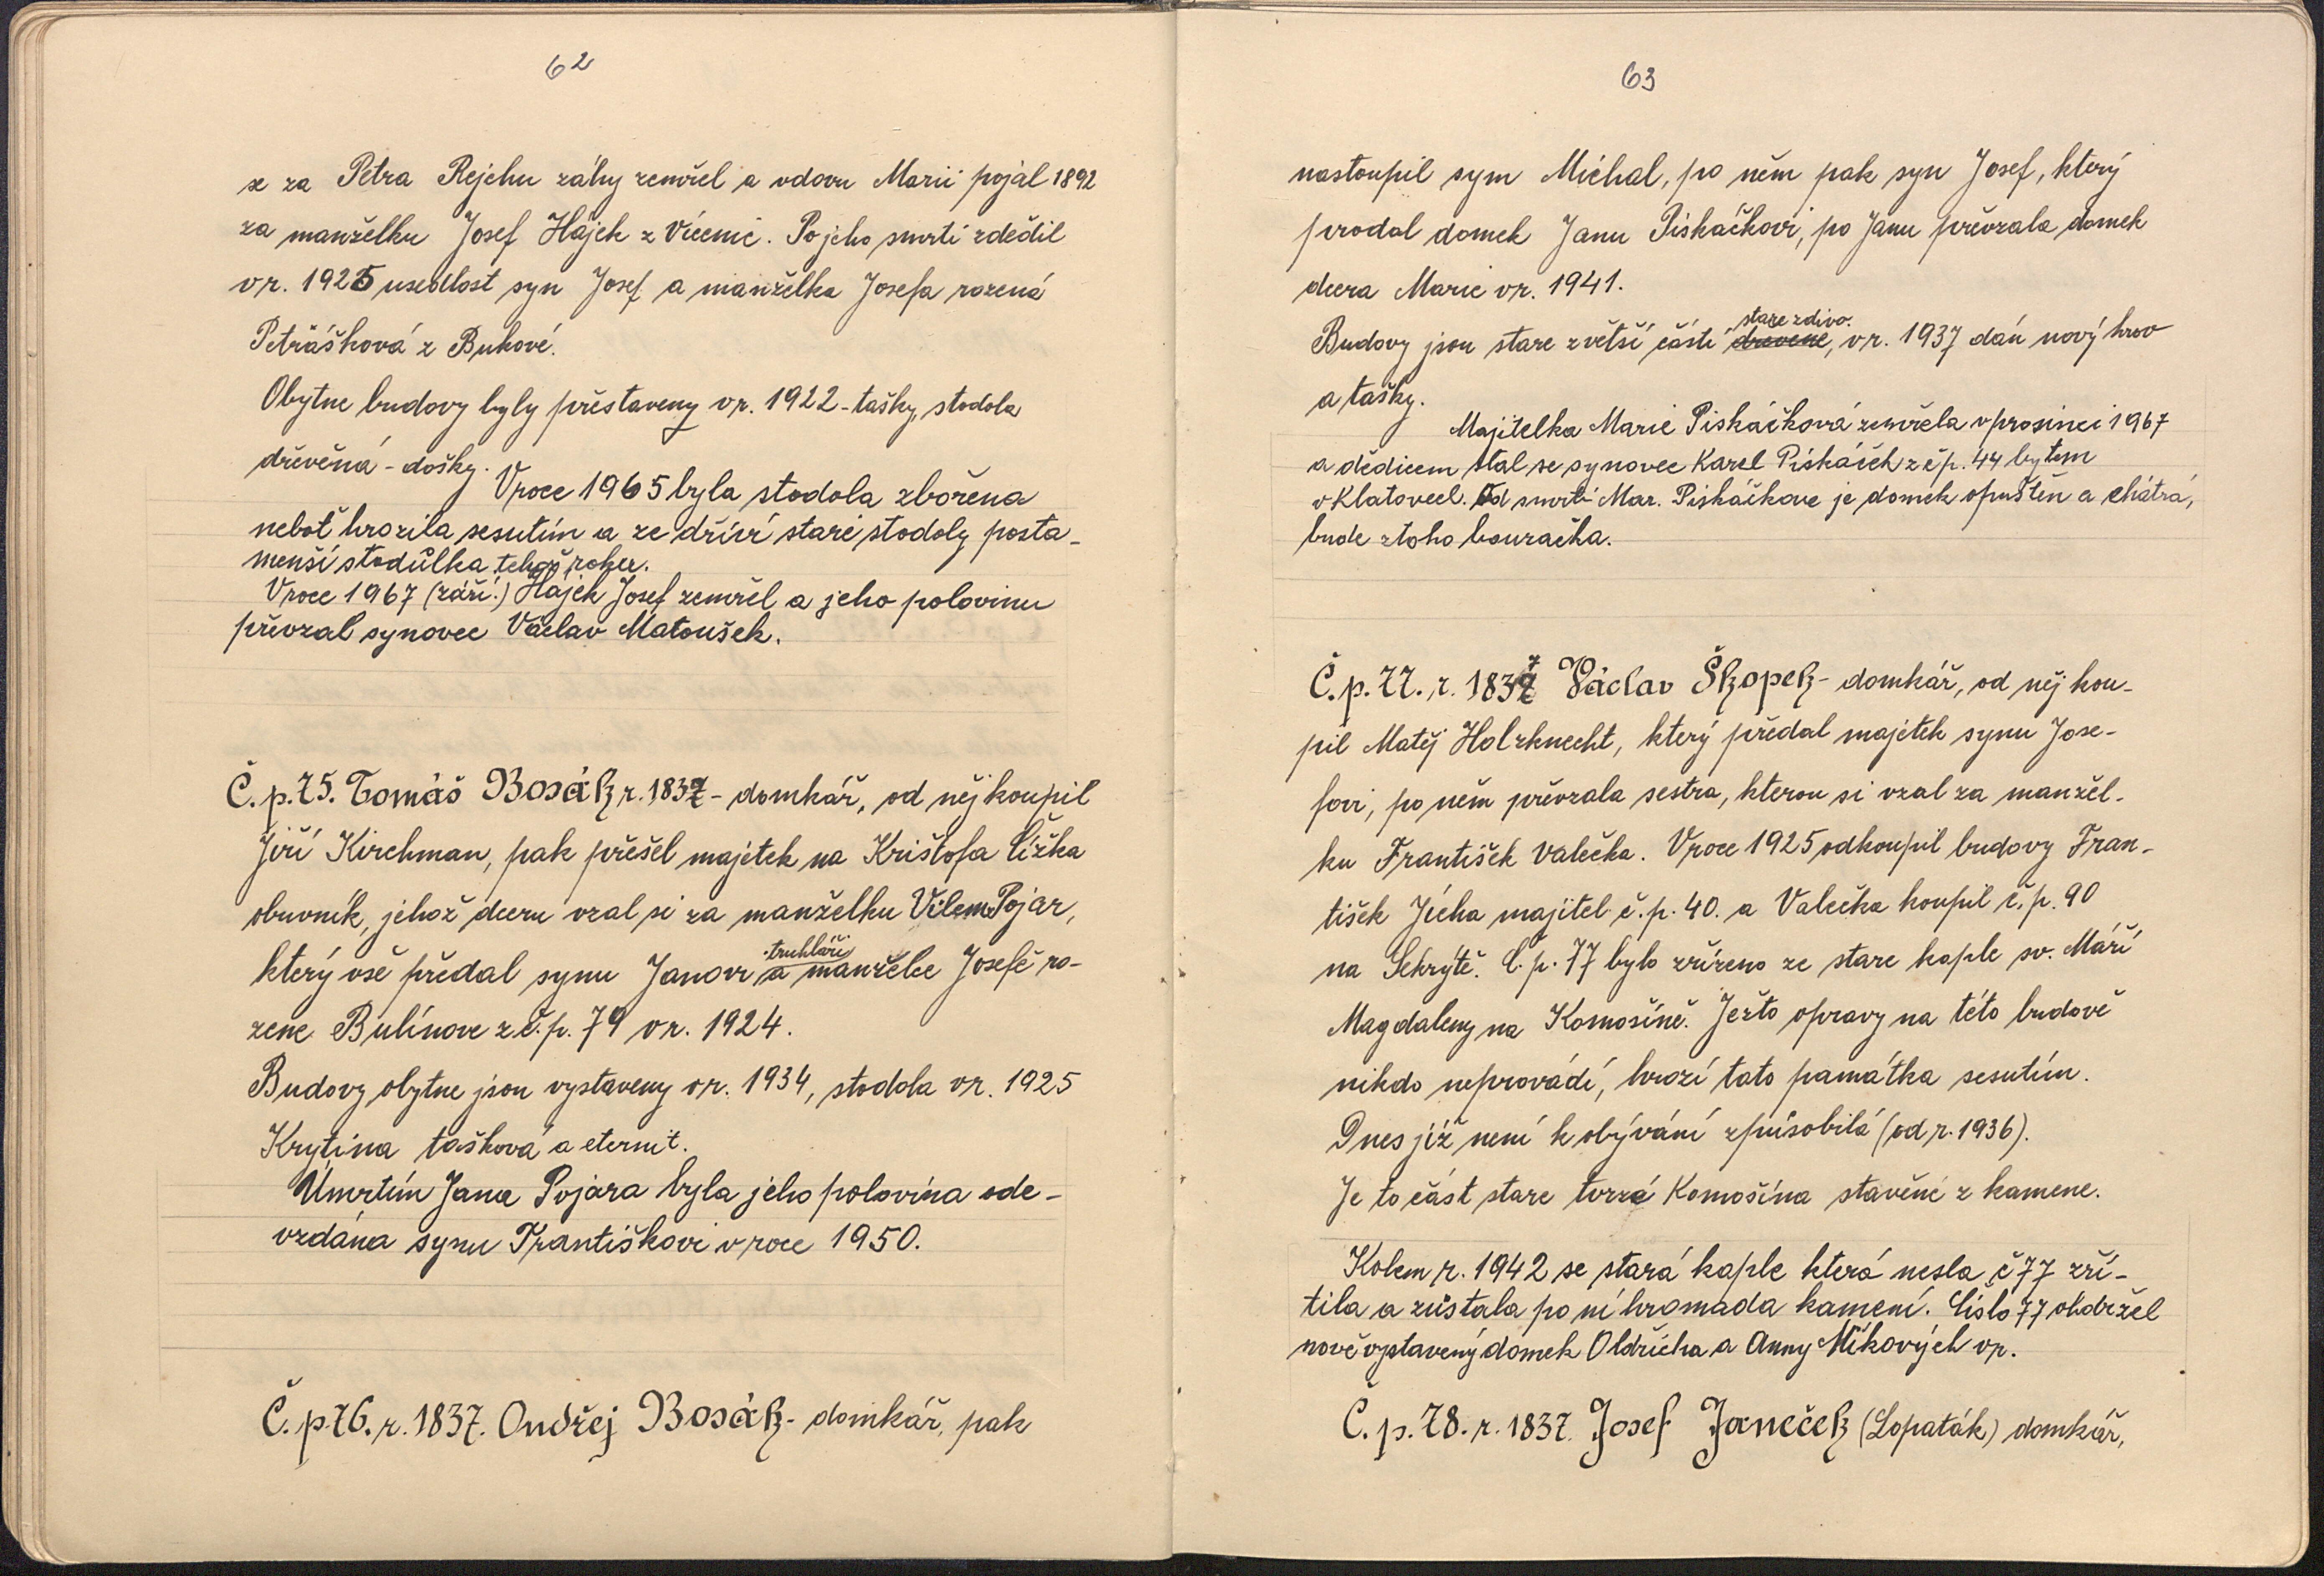 62
se za Petra Rejchu záhy zemřel a vdovu Marii pojál 1892
za manželku Josef Hájek z Vícenic. Po jeho smrti zdědil
v r. 1925 usedlost syn Josef a manželka Josefa rozená
Petrášková z Bukové.
Obytne budovy byly přestaveny v r. 1922 - tašky, stodola
dřevěná - došky.
V roce 1965 byla stodola zbořena
neboť hrozila sesutím a ze dříví staré stodoly posta-
menší stodůlka tehož roku.
V roce 1967 (září.) Hájek Josef zemřel a jeho polovinu
převzal synovec Václav Matoušek.
Č.p. 75. Tomáš Bosák r. 1837 - domkář, od něj koupil
Jiří Kirchman, pak přešel majetek na Krištofa Čížka
obuvník, jehož dceru vzal si za manželku Vilem Pojar,
který vše předal synu Janovi truhláři a manželce Josefě ro-
zene Bulínove z č.p. 79 v r. 1924.
Budovy obytne jsou vystaveny v r. 1934, stodola v r. 1925
Krytina tašková a eternit.
Úmrtím Jana Pojara byla jeho polovina ode-
vzdána synu Františkovi v roce 1950.
Č.p. 76. r. 1837. Ondřej Bosák - domkář, pak
63
nastoupil sym Michal, po něm pak syn Josef, který
prodal domek Janu Piskáčkovi, po Janu převzala domek
dcera Marie v r. 1941.
Budovy jsou stare z větší části drevene stare zdivo, v r. 1937 dán nový krov
a tašky.
Majitelka Marie Piskáčková zemřela v prosinci 1967
a dědicem stal se synovec Karel Piskáček z čp. 44 bytem
v Klatovech. Od smrti Mar. Piskáčkove je domek opuštěn a chátrá,
bude z toho bouračka.
Č.p. 77. r. 1837 Václav Škopek - domkář, od něj kou-
pil Matěj Holzknecht, který předal majetek synu Jose-
fovi, po něm převzala sestra, kterou si vzal za manžel-
ku František Valečka. V roce 1925 odkoupil budovy Fran-
tišek Jícha majitel č.p. 40. a Valečka koupil č.p. 90
na Sekrýtě. Č.p. 77 bylo zřízeno ze stare kaple sv. Máří
Magdaleny na Komošíně. Ježto opravy na této budově
nikdo neprovádí, hrozí tato památka sesutím.
Dnes již není k obývání způsobilá (od r. 1936).
Je to část stare tvrze Komošína stavěné z kamene.
Kolem r. 1942 se stará kaple která nesla č 77 zří-
tila a zůstala po ní hromada kamení. Číslo 77 obdržel
nově vystavený domek Oldřicha a Anny Míkových v r.
Č.p. 78. r. 1837. Josef Janeček (Lopaták) domkář,